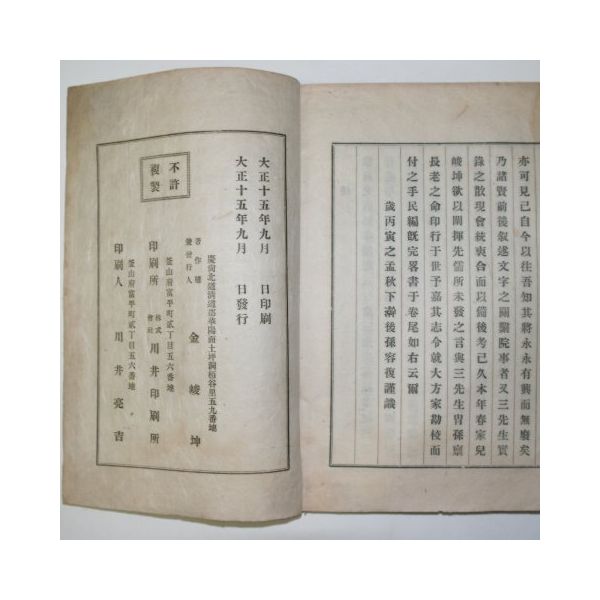 亦可見已自今以往吾知其將永永有興而無廢矣
乃諸賢前後叙述文字之關斸院事者及三先生實
錄之散現會統裒合而以備後考已久本年春家兒
峻坤欲以闡揮先儒所未發之言與三先生胄孫稟
長老之命印行于世予嘉其志令就大方家勘校而
付之手民編旣完畧書于卷尾如右云爾
歲丙寅之孟秋下澣後孫容復謹識
大正十五年九月　日印刷
大正十五年九月　日發行
慶尙北道淸道郡華陽面土坪洞栢谷里五九番地
著作權兼發行人　金峻坤
釜山府富平町貳丁目五六番地
印刷所　株式會社　川井印刷所
釜山府富平町貳丁目五六番地
印刷人　川井亮吉
不許
複製